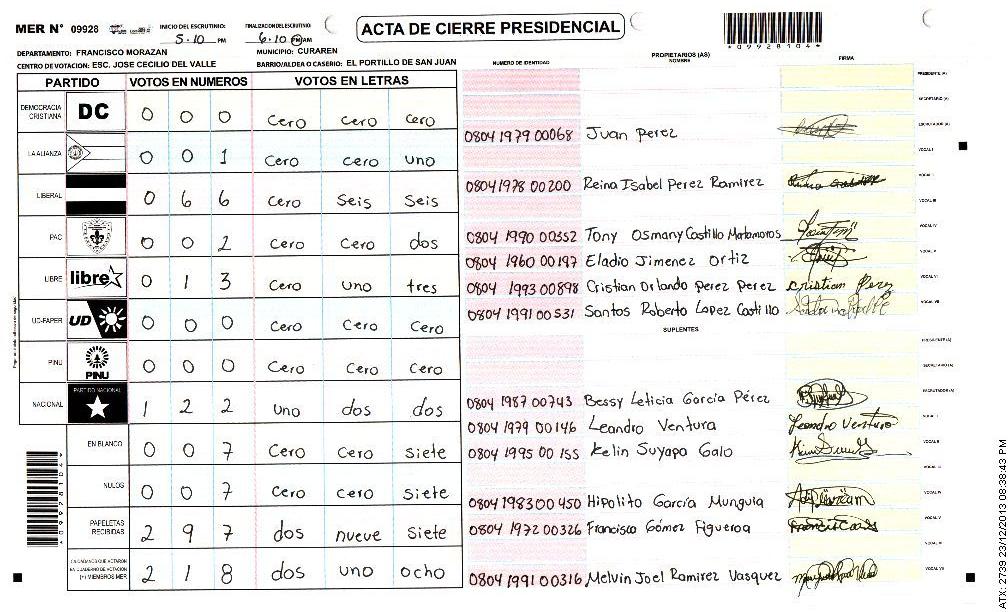 MER N° 09928
INICIO DEL ESCRUTINIO: 5:10 PM
FINALIZACION DEL ESCRUTINIO: 6:10 PM AM
ACTA DE CIERRE PRESIDENCIAL
*09928104*
DEPARTAMENTO: FRANCISCO MORAZAN
MUNICIPIO: CURAREN
CENTRO DE VOTACION: ESC. JOSE CECILIO DEL VALLE
BARRIO/ALDEA O CASERIO: EL PORTILLO DE SAN JUAN
PARTIDO VOTOS EN NUMEROS VOTOS EN LETRAS
DEMOCRACIA CRISTIANA DC 0 0 0 cero cero cero
LA ALIANZA 0 0 1 cero cero uno
LIBERAL 0 6 6 cero seis seis
PAC 0 0 2 cero cero dos
LIBRE libre 0 1 3 cero uno tres
UD-FAPER UD 0 0 0 cero cero cero
PINU PINU 0 0 0 cero cero cero
NACIONAL PARTIDO NACIONAL 1 2 2 uno dos dos
EN BLANCO 0 0 7 cero cero siete
NULOS 0 0 7 cero cero siete
PAPELETAS RECIBIDAS 2 9 7 dos nueve siete
CIUDADANOS QUE VOTARON EN CUADERNO DE VOTACION (+) MIEMBROS MER 2 1 8 dos uno ocho
*09928104*
PROPIETARIOS (AS)
NUMERO DE IDENTIDAD NOMBRE FIRMA
PRESIDENTE (A)
SECRETARIO (A)
ESCRUTADOR (A)
0804 1979 00068 Juan Perez
VOCAL I
VOCAL II
0804 1978 00200 Reina Isabel Perez Ramirez
VOCAL III
VOCAL IV
0804 1990 00352 Tony Osmany Castillo Matamoros
VOCAL V
0804 1960 00197 Eladio Jimenez Ortiz
VOCAL VI
0804 1993 00898 Cristian Orlando perez Perez cristian Perez
VOCAL VII
0804 1991 00531 Santos Roberto Lopez Castillo
SUPLENTES
PRESIDENTE (A)
SECRETARIO (A)
ESCRUTADOR (A)
0804 1987 00743 Bessy Leticia García Pérez
VOCAL I
0804 1979 00146 Leandro Ventura Leandro Ventura
VOCAL II
0804 1995 00155 Kelin Suyapa Galo
VOCAL III
VOCAL IV
0804 1983 00450 Hipolito García Munguia
VOCAL V
0804 1972 00326 Francisco Gómez Figueroa
VOCAL VI
VOCAL VII
0804 1991 00316 Melvin Joel Ramirez Vasquez
ATX: 2739 23/12/2013 08:38:43 PM